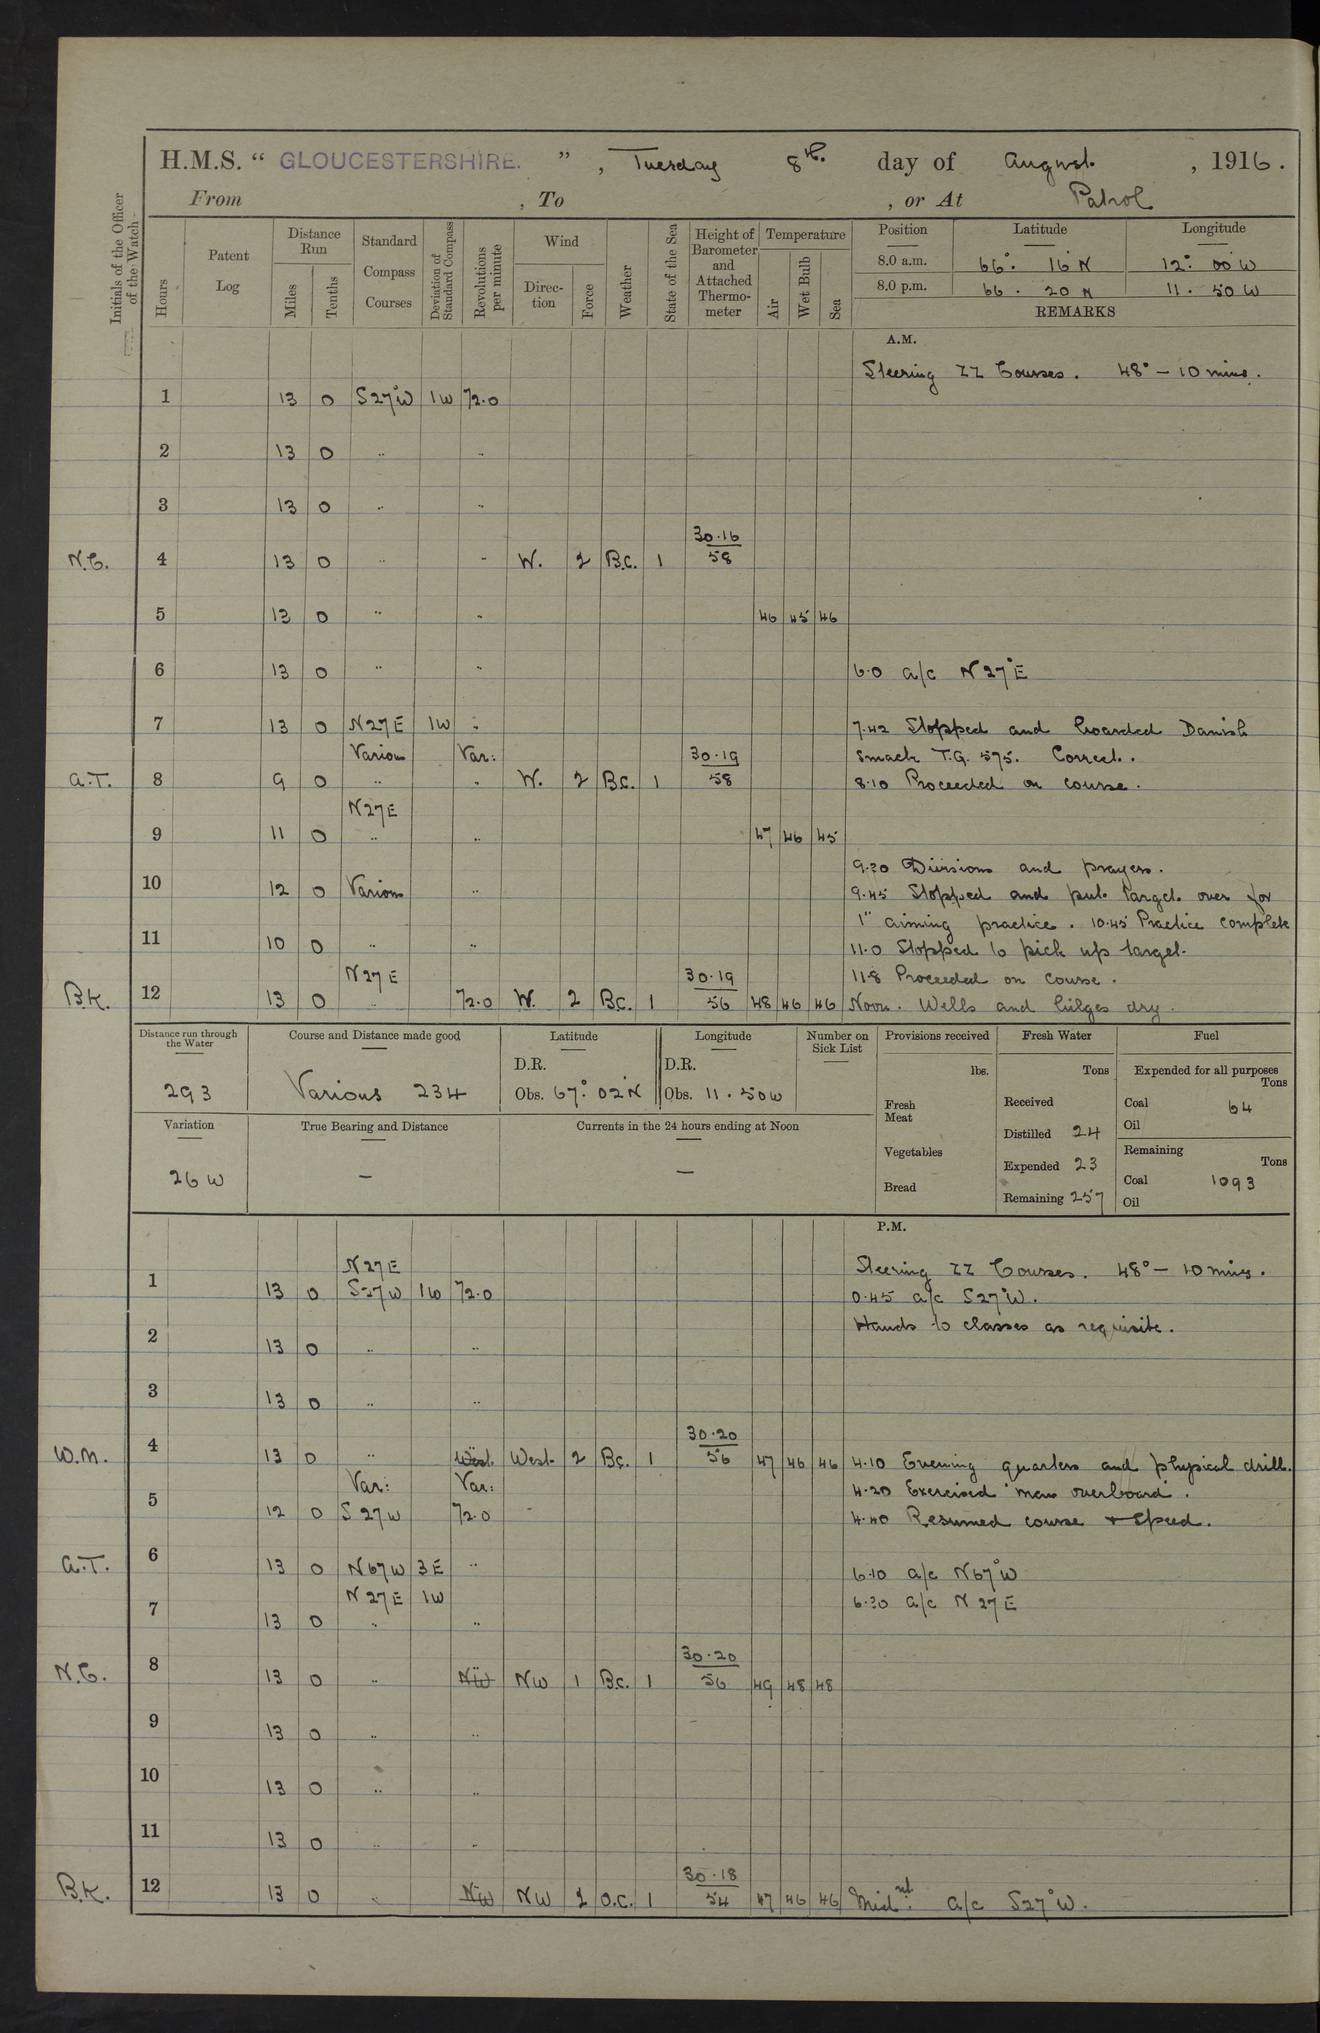 H.M.S. “ GLOUCESTERSHIRE. ” , Tuesday 8th. day of August , 1916.
From , To , or At Patrol
Initials of the Officer of the Watch
Hours
Patent Log
Distance Run
Miles
Tenths
Standard Compass Courses
Deviation of Standard Compass
Revolutions per minute
Wind
Direction
Force
Weather
State of the Sea
Height of Barometer and Attached Thermometer
Temperature
Air
Wet Bulb
Sea
Position Latitude Longitude
8.0 a.m. 66° 16' N 12° 00' W
8.0 p.m. 66 . 20 N 11 . 50 W
REMARKS
A.M.
Steering ZZ Courses. 48° – 10 mins.
1 13 0 S27°W 1W 72.0
2 13 0 .. ..
3 13 0 .. ..
30.16
N.C. 4 13 0 .. .. W. 2 B.C. 1 58
5 13 0 .. .. 46 45 46
6 13 0 .. .. 6.0 a/c N27°E
7 13 0 N27E 1W .. 7.42 Stopped and boarded Danish
Various Var: 30.19 smack T.G. 575. Correct.
A.T. 8 9 0 .. .. W. 2 B.C. 1 58 8.10 Proceeded on course.
N27E
9 11 0 .. .. 47 46 45
9.30 Divisions and prayers.
10 12 0 Various .. 9.45 Stopped and put target over for
1" aiming practice. 10.45 Practice complete
11 10 0 .. .. 11.0 Stopped to pick up target.
N27E 30.19 11.8 Proceeded on course.
B.K. 12 13 0 .. 72.0 W. 2 B.C. 1 56 48 46 46 Noon. Wells and bilges dry.
Distance run through the Water
293
Course and Distance made good
Various 234
Latitude
D.R.
Obs. 67° 02' N
Longitude
D.R.
Obs. 11 . 50 W
Number on Sick List
Provisions received
lbs.
Fresh Meat
Vegetables
Bread
Fresh Water
Tons
Received
Distilled 24
Expended 23
Remaining 257
Fuel
Expended for all purposes
Tons
Coal 64
Oil
Remaining
Tons
Coal 1093
Oil
Variation
26 W
True Bearing and Distance
—
Currents in the 24 hours ending at Noon
—
P.M.
N27E Steering ZZ Courses. 48° – 10 mins.
1 13 0 S27W 1W 72.0 0.45 a/c S27°W.
Hands to classes as requisite.
2 13 0 .. ..
3 13 0 .. ..
30.20
W.M. 4 13 0 .. West. West. 2 B.C. 1 56 47 46 46 4.10 Evening quarters and physical drill.
Var: Var: 4.20 Exercised man overboard.
5 12 0 S 27W 72.0 4.40 Resumed course & speed.
A.T. 6 13 0 N67W 3E .. 6.10 a/c N67°W
N27E 1W 6.30 a/c N 27 E
7 13 0 .. ..
30.20
N.C. 8 13 0 .. NW NW 1 B.C. 1 56 49 48 48
9 13 0 .. ..
10 13 0 .. ..
11 13 0 .. ..
30.18
B.K. 12 13 0 .. NW NW 2 O.C. 1 54 47 46 46 Midnt. a/c S27°W.